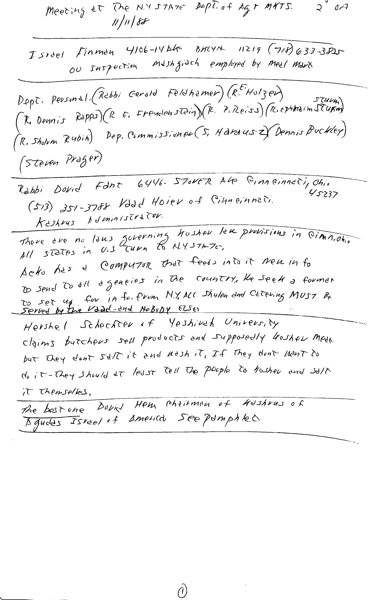 Meeting at the NY STATE Dept. of Agr MKTS.
11/11/88
Israel Finman 4106-14 Ave BKLYN 11219 (718) 633-3825
OU inspection mashgiach employed by Meal Mart
Dept. Personal. (Rabbi Gerald Feldhamer) (R. E Holzer)
(R. Dennis Rapps) (R C. Freudenstein) (R. P. Reiss) (R. Ephraim Sturm)
(R. Sholom Rubin) Dep. Commissioner (S, ) (Dennis Buckley)
(Steven Prager)
Rabbi David Fant 6446- STOVER Ave Cinncinnati, Ohio
45237
(513) 351-3788 Vaad Hoier of Cinncinnati.
Kashrus Administrator.
There are no laws governing Kosher law provisions in Cinn, Ohio
All states in U.S turn to NYSTATE.
has a COMPUTOR that feeds into it new info
to send to all agencies in the country. He seek a format
to set up for info. from NY. ALL Shulim and Catering MUST Be
served by the Vaad and NoBody ELSE.
Hershel Schechter of Yeshivah University
claims butchers sell products and supposedly Kosher meat
but they dont salt it and wash it. If they dont want to
do it - they should at least tell the people to Kosher and salt
it themselves.
The best one David Hem chairman of Kashrus of
Agudas Israel of America See Pamphlet
1